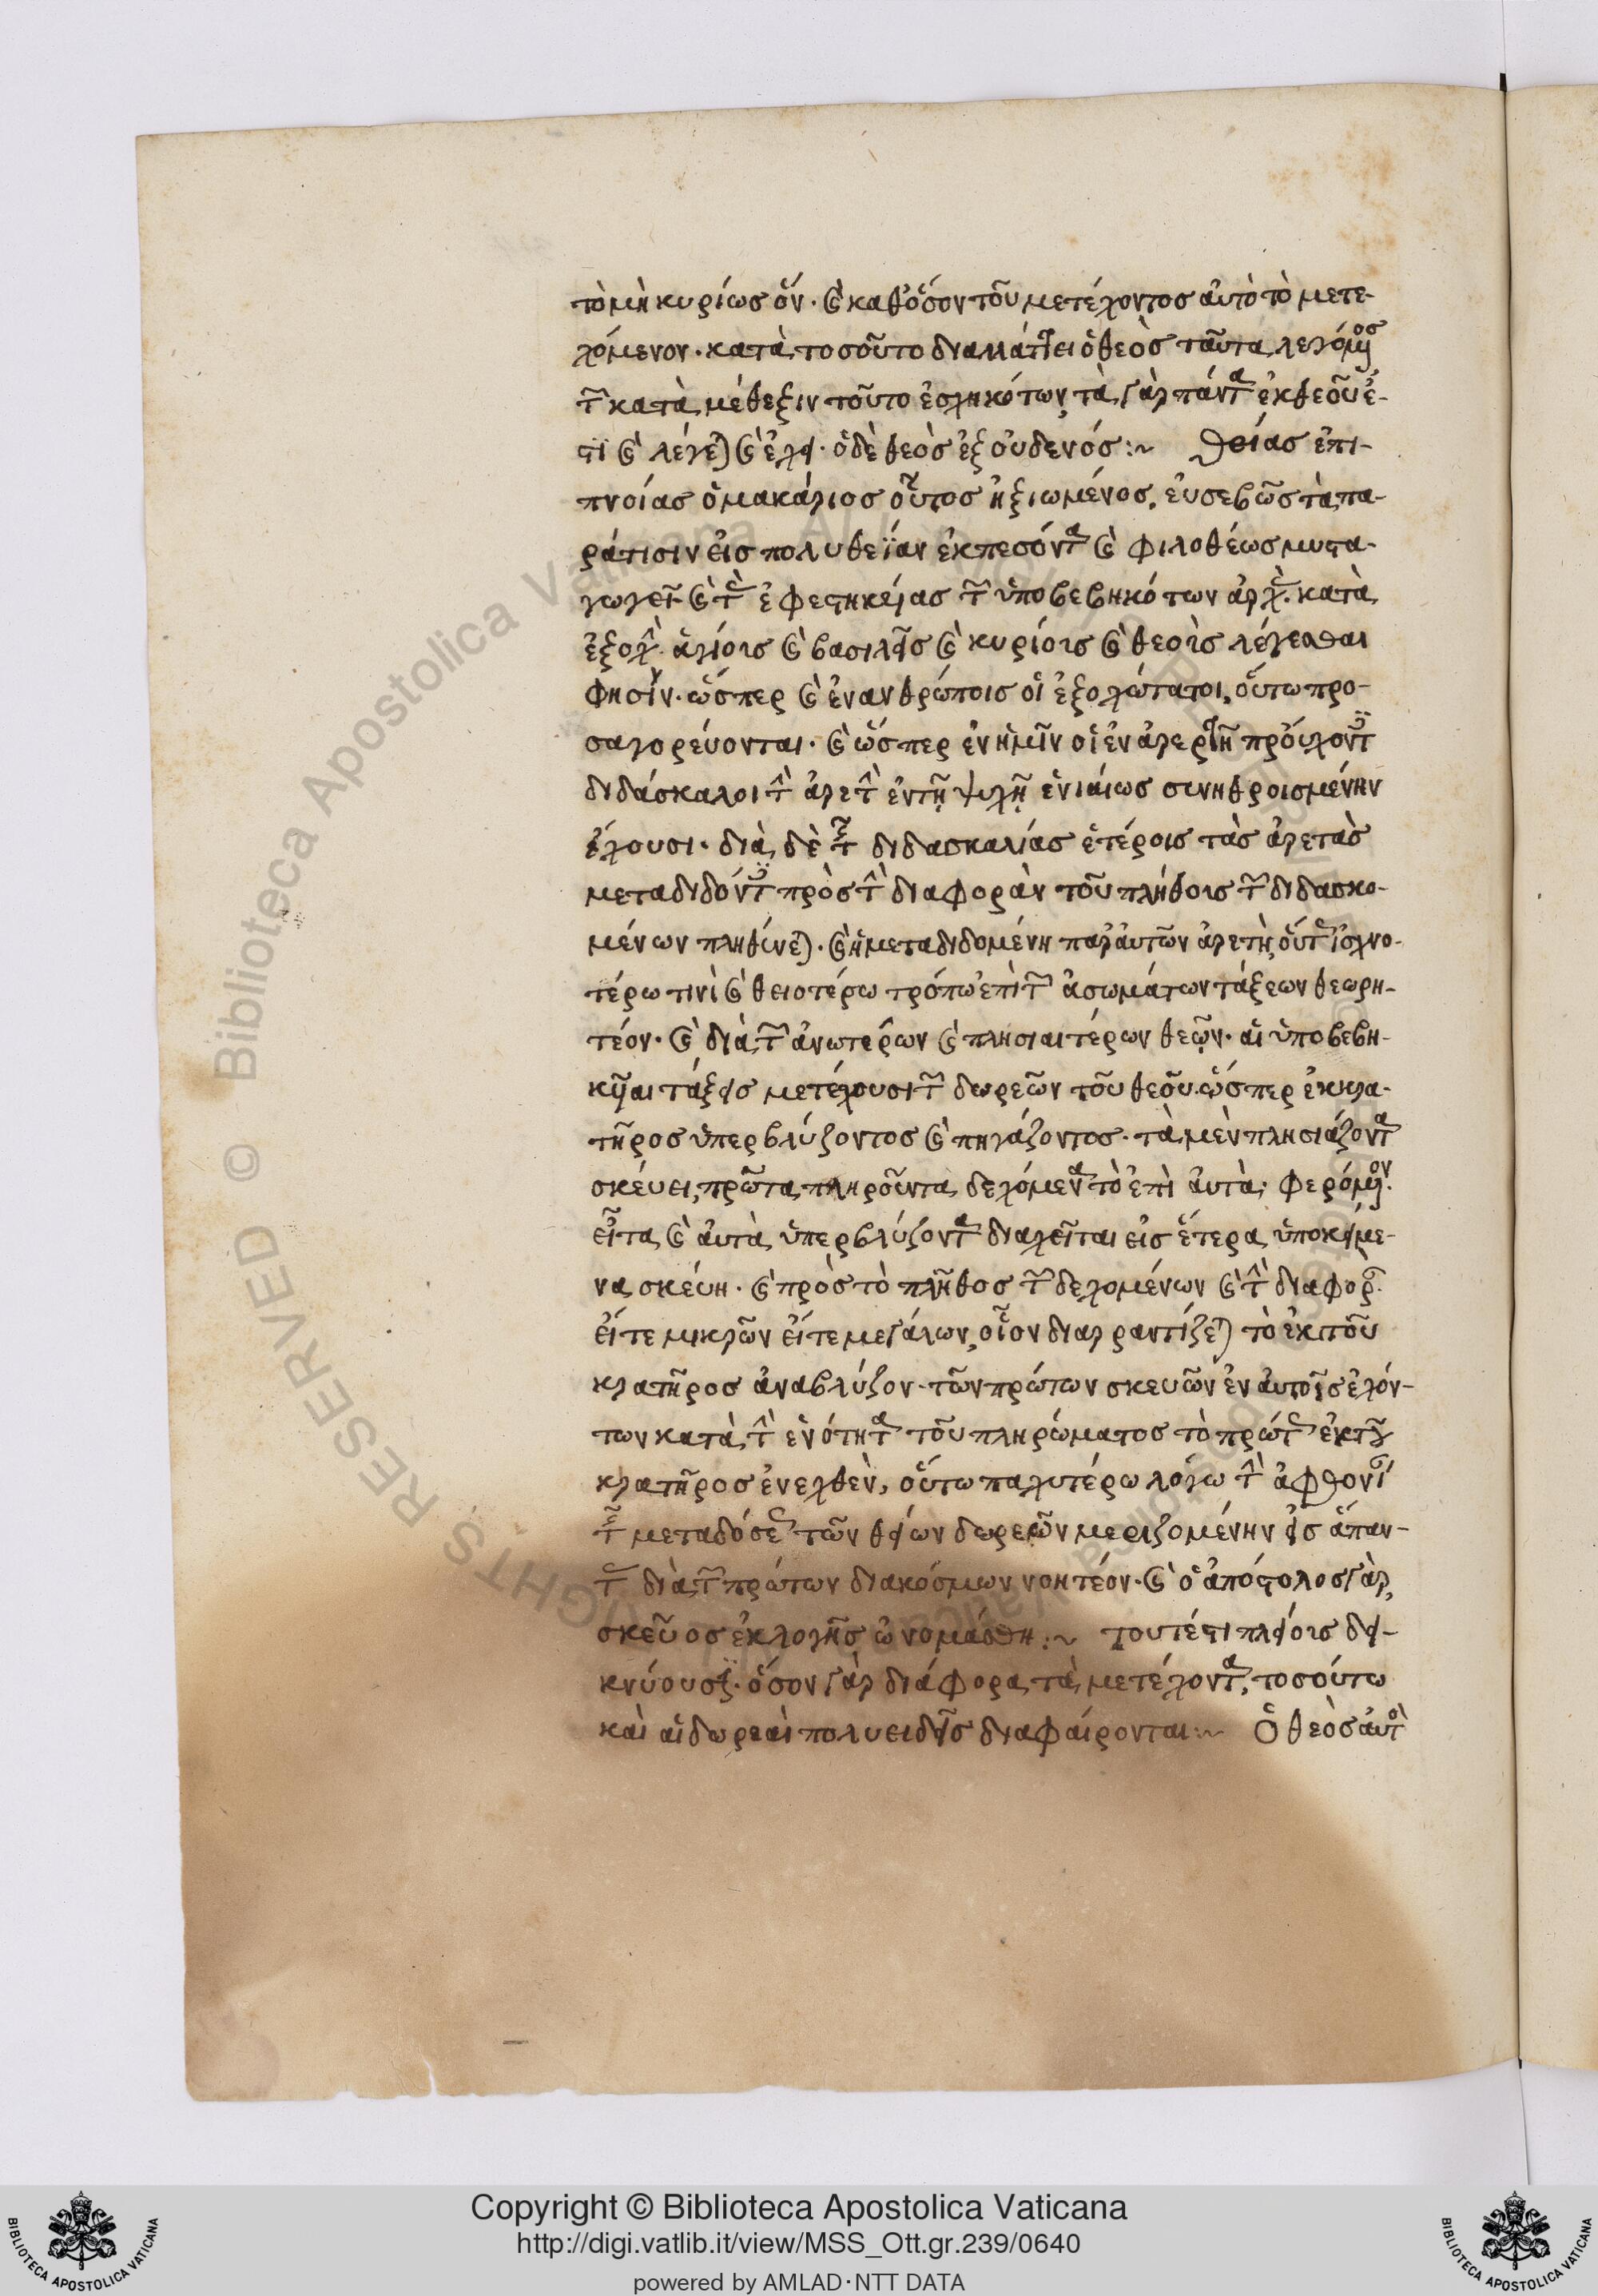 τὸ μὴ κυρίως ὄν. καὶ καθόσον τοῦ μετέχοντος αὐτὸ τὸ μετε-
χόμενον. κατὰ τοσοῦτο διαλλάττει ὁ θεὸς ταῦτα λεγόμενος
τῶν κατὰ μέθεξιν τοῦτο ἐσχηκότων, τὰ γὰρ πάντα ἐκ θεοῦ ἐ-
στὶ καὶ λέγεται καὶ ἔχει. ὁ δὲ θεὸς ἐξ οὐδενός :~ θείας ἐπι-
πνοίας ὁ μακάριος οὗτος ἠξιωμένος, εὐσεβῶς τὰ πα-
ρά τισιν εἰς πολυθεΐαν ἐκπεσόντα καὶ φιλοθέως μυστα-
γωγεῖ. καὶ τὰς ἐφεστηκείας τῶν ὑποβεβηκότων ἀρχὰς. κατὰ
ἐξοχὴν. ἁγίοις καὶ βασιλεῖς καὶ κυρίοις καὶ θεοῖς λέγεσθαι
φησίν. ὥσπερ καὶ ἐν ἀνθρώποις οἱ ἐξοχώτατοι, οὕτω προ-
σαγορεύονται. καὶ ὥσπερ ἐν ἡμῖν οἱ ἐν ἀρετῇ προέχοντες
διδάσκαλοι τὴν ἀρετὴν ἐν τῇ ψυχῇ ἑνιαίως συνηθροισμένην
ἔχουσι. διὰ δὲ τῆς διδασκαλίας ἑτέροις τὰς ἀρετὰς
μεταδιδόντες πρὸς τὴν διαφορὰν τοῦ πλήθους τῶν διδασκο-
μένων πληθύνεται. καὶ ἡ μεταδιδομένη παρ' αὐτῶν ἀρετὴ, οὕτως ἰσχνο-
τέρω τινὶ καὶ θειοτέρω τρόπω ἐπὶ τῶν ἀσωμάτων τάξεων θεωρη-
τέον. καὶ διὰ τῶν ἀνωτέρων καὶ πλησιαιτέρων θεῷ. αἱ ὑποβεβη-
κυῖαι τάξεις μετέχουσι τῶν δωρεῶν τοῦ θεοῦ. ὥσπερ ἐκ κρα-
τῆρος ὑπερβλύζοντος καὶ πηγάζοντος. τὰ μὲν πλησιάζοντα
σκεύει, πρῶτα πληροῦνται δεχόμενα τὸ ἐπὶ αὐτὰ φερόμενον.
εἶτα καὶ αὐτὰ ὑπερβλύζοντα διαχεῖται εἰς ἕτερα ὑποκείμε-
να σκεύη. καὶ πρὸς τὸ πλῆθος τῶν δεχομένων καὶ τὴν διαφορὰν.
εἴτε μικρῶν εἴτε μεγάλων, οἷον διαρραντίζεται τὸ ἐκ τοῦ
κρατῆρος ἀναβλύζον. τῶν πρώτων σκευῶν ἐν αὐτοῖς ἐχόν-
των κατὰ τὴν ἑνότητα τοῦ πληρώματος τὸ πρώτως ἐκ τοῦ
κρατῆρος ἐνεχθὲν, οὕτω παχυτέρω λόγω τὴν ἀφθονίαν
τῆς μεταδόσεως τῶν θείων δωρεῶν μεριζομένην εἰς ἅπαν-
τας διὰ τῶν πρώτων διακόσμων νοητέον. καὶ ὁ ἀπόστολος γὰρ
σκεῦος ἐκλογῆς ὠνομάσθη :~ τουτέστι πλείοις δει-
κνύουσι. ὅσον γὰρ διάφορα τὰ μετέχοντα, τοσούτω
καὶ αἱ δωρεαὶ πολυειδεῖς διαφαίρονται :~ Ὁ θεὸς αὐτὸ
Copyright © Biblioteca Apostolica Vaticana
http://digi.vatlib.it/view/MSS_Ott.gr.239/0640
powered by AMLAD·NTT DATA